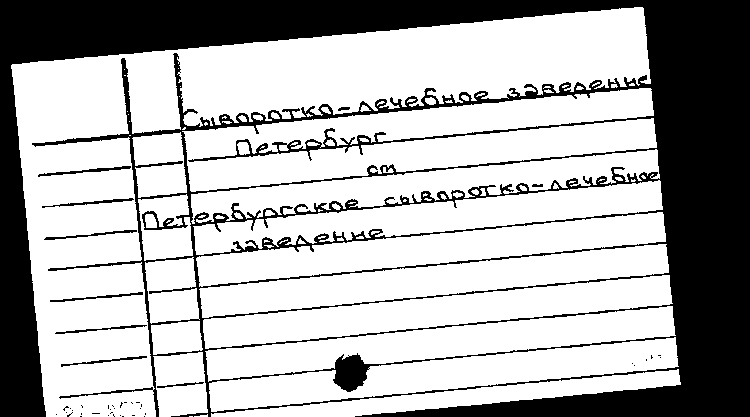 Сыворотко-лечебное заведение
Петербург
см
Петербургское сыворотко-лечебное
заведение.